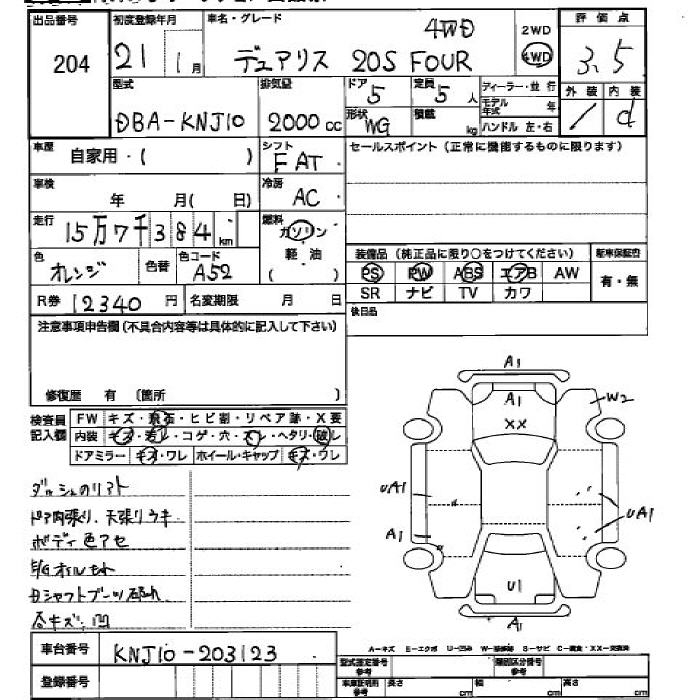 出品番号 初度登録年月 車名・グレード 評価点
204 21 1月 デュアリス 20S FOUR 4WD 2WD 4WD 3.5
型式 排気量 ドア 定員 ディーラー・並行 外装 内装
DBA-KNJ10 2000cc 5 5人 モデル年式 年 1 d
形状 WG 積載 kg ハンドル 左・右
車歴 自家用・( ) シフト FAT セールスポイント(正常に機能するものに限ります)
車検 年 月( 日) 冷房 AC
走行 15万7千384km 燃料 ガソリン 軽油 ( )
装備品(純正品に限り○をつけてください) 新車保証書
色 オレンジ 色替 色コード A52 PS PW ABS エアB AW 有・無
R券 12340円 名変期限 月 日 SR ナビ TV カワ
注意事項申告欄(不具合内容等は具体的に記入して下さい) 後日品
修復歴 有 〔箇所 〕
検査員記入欄 FW キズ・飛石・ヒビ割・リペア跡・X要
内装 キズ・汚レ・コゲ・穴・スレ・ヘタリ・破レ
ドアミラー キズ・ワレ ホイール・キャップ キズ・ワレ
A1
A1
XX
W2
UA1
UA1
A1
U1
A1
ダッシュのリフト
ドア内張り、天張りウキ
ボディ色アセ
E/Gオイルもれ
Dシャフトブーツ破れ
各キズ、凹
車台番号 KNJ10-203123
A-キズ E-エクボ U-凹み W-補修跡 S-サビ C-腐食 XX-交換済
登録番号 型式指定番号 参考 類別区分番号 参考
車庫証明用 参考 長さ cm 幅 cm 高さ cm